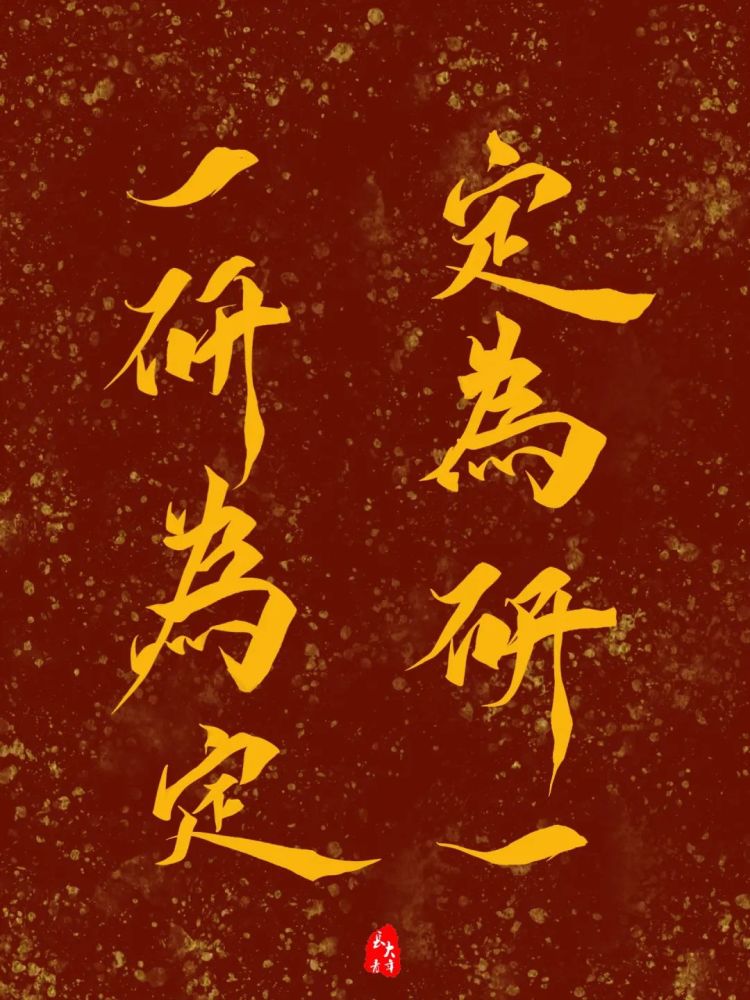 定為研一
一研為定